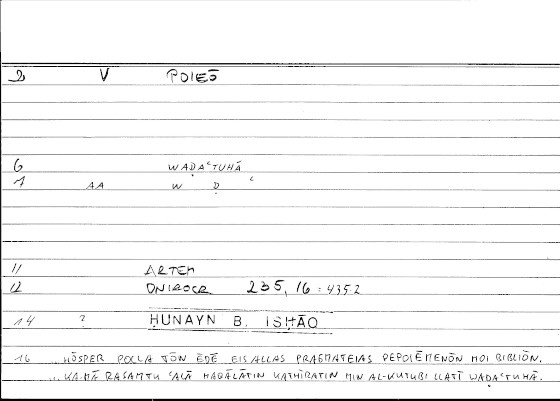 2 V POIEŌ
6 WAḌAʿTUHĀ
7 AA W Ḍ ʿ
11 ARTEM
12 ONIROCR 235, 16 = 435.2
14 ? ḤUNAYN B. ISḤĀQ
16 ... HŌSPER POLLA TŌN ĒDĒ EIS ALLAS PRAGMATEIAS PEPOIĒMENŌN MOI BIBLIŌN.
... KA-MĀ RASAMTU ʿALĀ MAQĀLĀTIN KATHĪRATIN MIN AL-KUTUBI LLATĪ WAḌAʿTUHĀ.